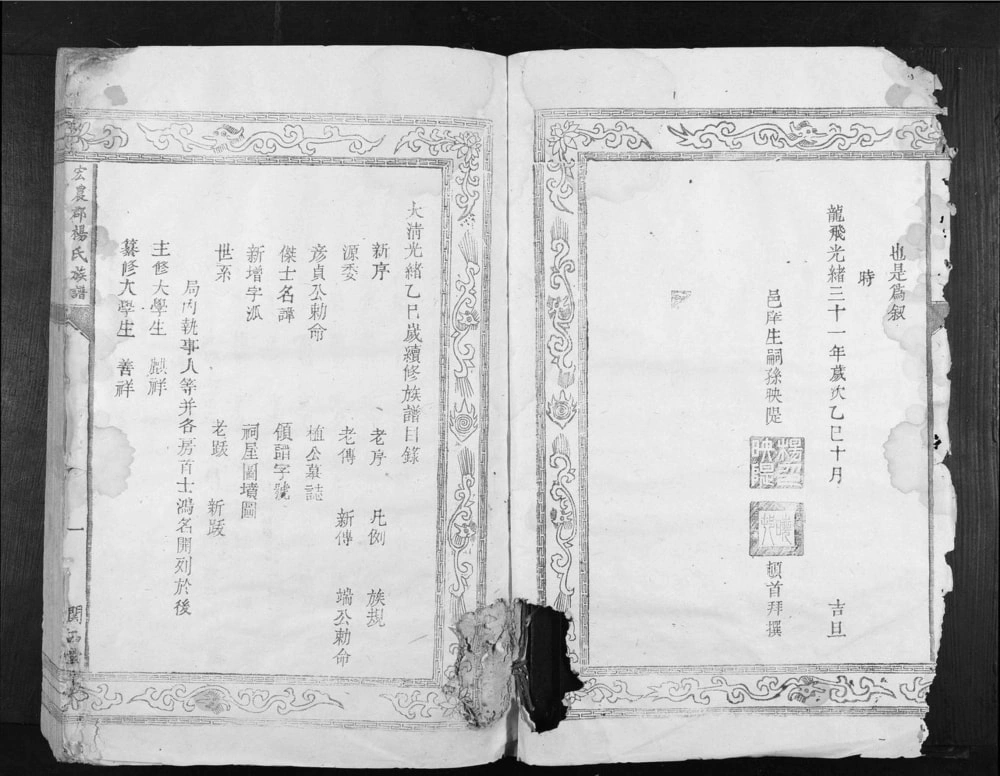 也是為叙
時
龍飛光緒三十一年歲次乙巳十月 吉旦
邑庠生嗣孫映隄 頓首拜撰
大清光緒乙巳歲續修族譜目錄
新序 老序 凡例 族規
源委 老傳 新傳 端公勅命
彦貞公勅命 植公墓誌
傑士名諱 領譜字號
新增字派 祠屋圖墳圖
世系 老跋 新跋
局内執事人等并各房首士鴻名開列於後
主修大學生 麒祥
纂修大學生 善祥
宏農郡楊氏族譜
一
關西堂